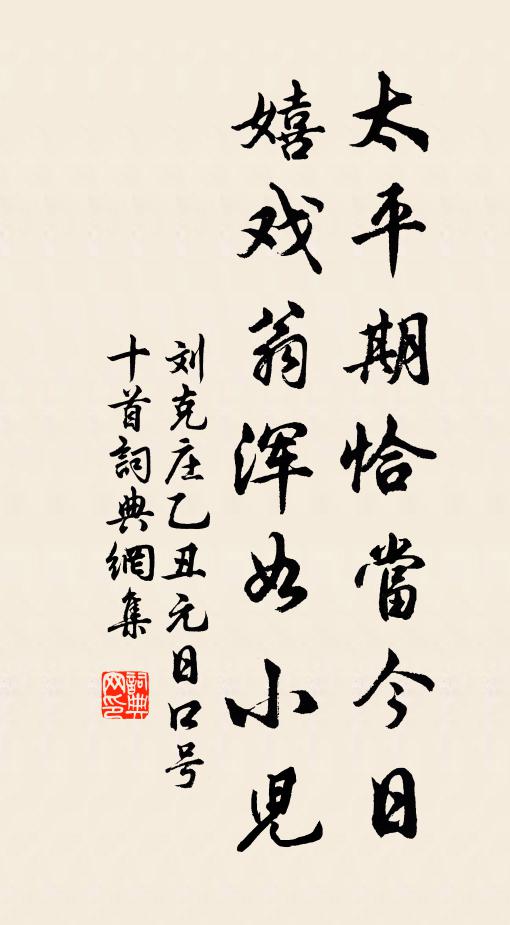 太平期恰當今日
嬉戏翁浑如小児
刘克庄乙丑元日口号
十首詞典網集
詞典網印